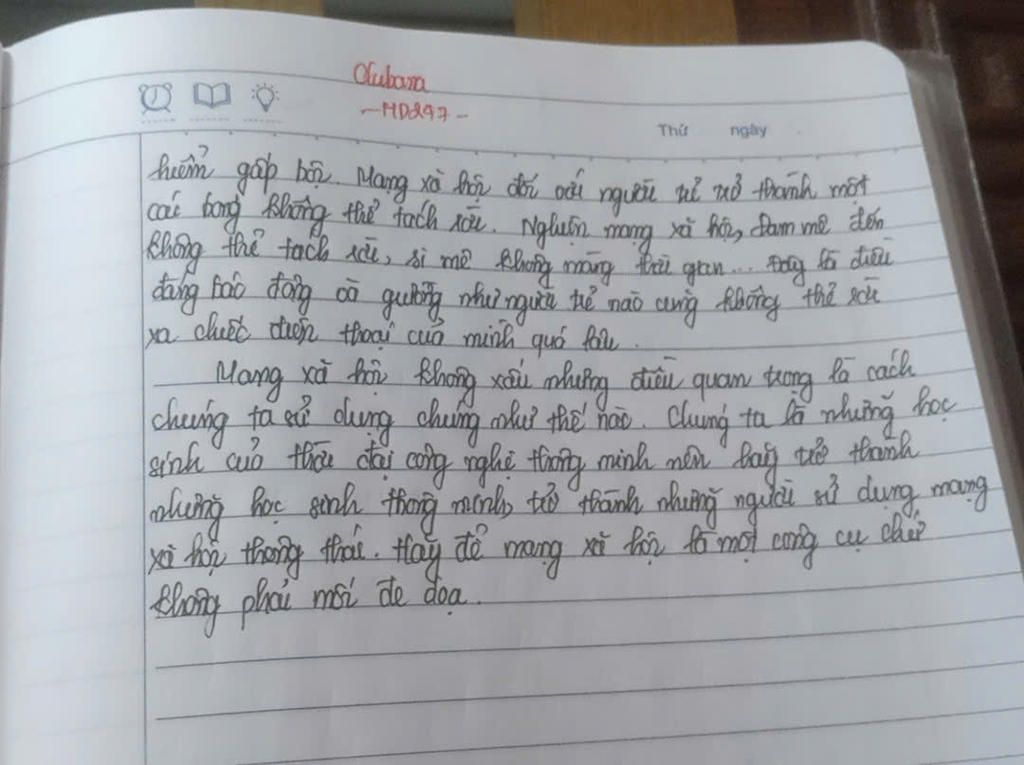 Olubasa
-MD247-
Thứ ngày
hiểm gấp bội. Mạng xã hội đối với người trẻ trở thành một
cái bóng không thể tách rời. Nghiện mạng xã hội, đam mê đến
không thể tách rời, si mê không màng thời gian... Đây là điều
đáng báo động và gường như người trẻ nào cũng không thể rời
xa chiếc điện thoại của mình quá lâu.
Mạng xã hội không xấu nhưng điều quan trọng là cách
chúng ta sử dụng chúng như thế nào. Chúng ta là những học
sinh của thời đại công nghệ thông minh nên hãy trở thành
những học sinh thông minh, trở thành những người sử dụng mạng
xã hội thông thái. Hãy để mạng xã hội là một công cụ chứ
không phải mối đe dọa.